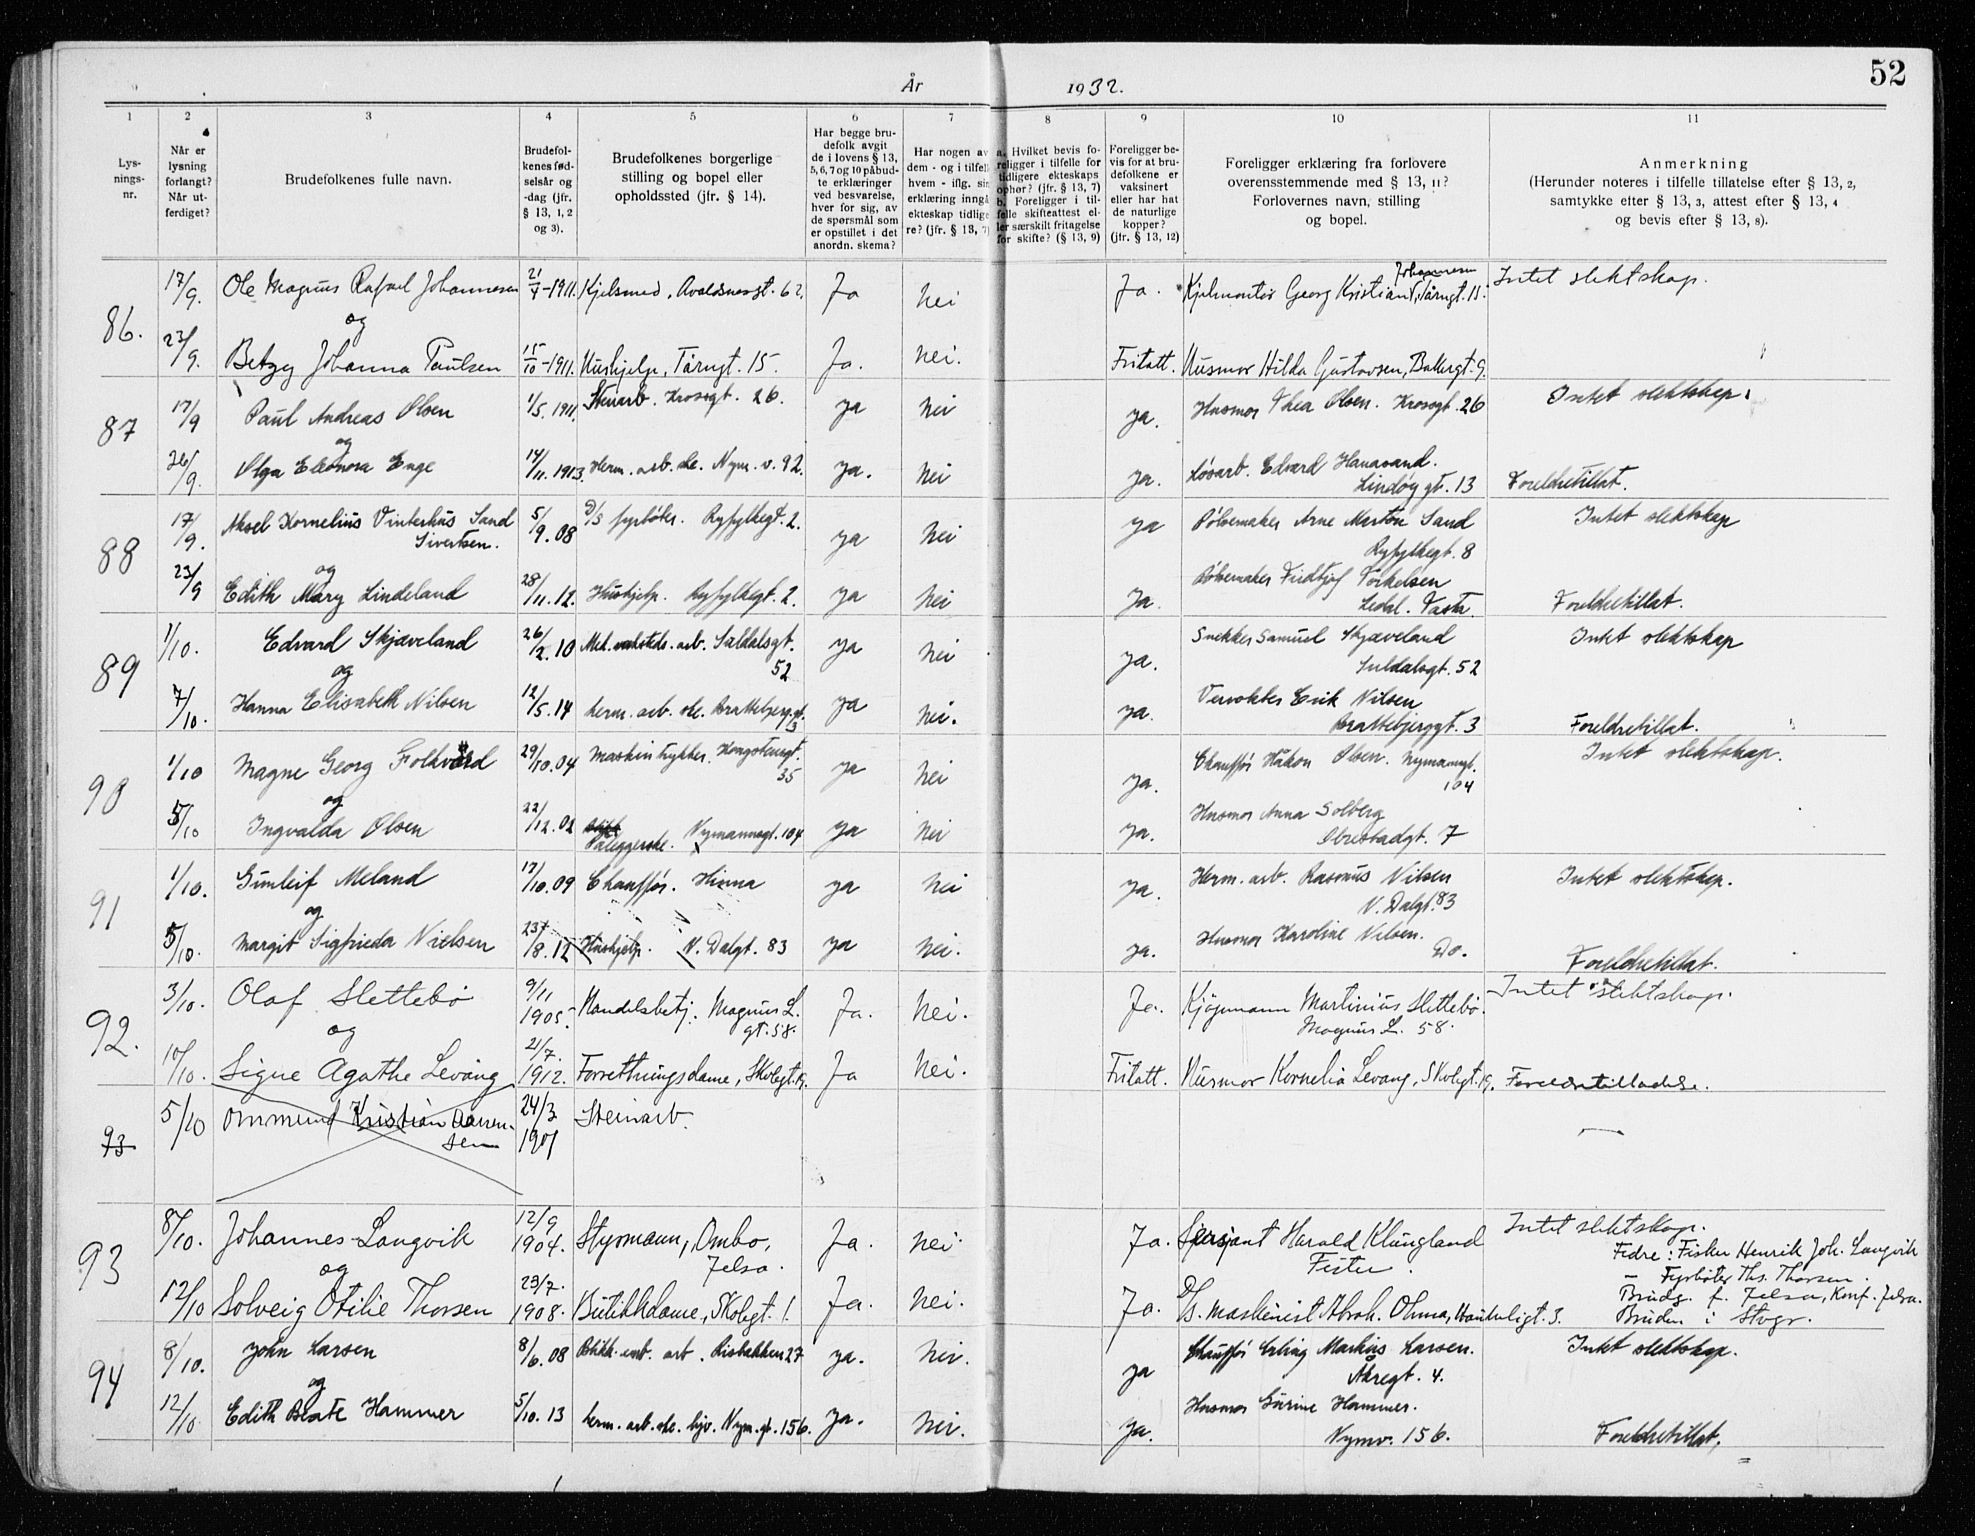 52
År 1932.
1 2 3 4 5 6 7 8 9 10 11
Lys-
nings-
nr.
Når er
lysning
forlangt?
Når ut-
ferdiget?
Brudefolkenes fulle navn.
Brudefol-
kenes fød-
selsår og
-dag (jfr.
§ 13, 1, 2
og 3).
Brudefolkenes borgerlige
stilling og bopel eller
opholdssted (jfr. § 14).
Har begge bru-
defolk avgit
de i lovens § 13,
5, 6, 7 og 10 påbud-
te erklæringer
ved besvarelse,
hver for sig, av
de spørsmål som
er opstillet i det
anordn. skema?
Har nogen av
dem - og i tilfelle
hvem - iflg. sin
erklæring inngå
ekteskap tidlige
re? (jfr. § 13, 7)
a. Hvilket bevis fo-
religger i tilfelle for
tidligere ekteskaps
ophør? (jfr. § 13, 7)
b. Foreligger i til-
felle skifteattest el-
ler særskilt fritagelse
for skifte? (§ 13, 9)
Foreligger be-
vis for at bru-
defolkene er
vaksinert
eller har hat
de naturlige
kopper?
(jfr. § 13, 12)
Foreligger erklæring fra forlovere
overensstemmende med § 13, 11?
Forlovernes navn, stilling
og bopel.
Anmerkning
(Herunder noteres i tilfelle tillatelse efter § 13, 2,
samtykke efter § 13, 3, attest efter § 13, 4
og bevis efter § 13, 8).
86. 17/9. Ole Magnus Rafael Johannesen 21/4-1911. Kjelsmed, Avaldsnesgt. 62. Ja nei Ja. Kjelmontør Georg Kristian Johannesen, Tårngt. 15. Intet slektskap.
og
23/9. Betzy Johanna Paulsen 15/10-1911. Hushjelp, Tårngt. 15. Ja. nei. Fritatt. Husmor Hilda Gustavsen, Bakergt. 9.
87 17/9 Paul Andreas Olsen 1/5. 1911. Stenarb. Krossgt. 26. ja nei ja. Husmor Thea Olsen. Krossgt. 26 Intet slektskap.
og
26/9. Olga Eleonora Enge 14/11. 1913. Herm. arb.ske. Nym. v. 92. ja. nei ja. Løsarb. Edvard Hanasand.
Lindøygt. 13 Foreldretillat.
88 17/9. Aksel Kornelius Vinterhus Sand
Sivertsen. 5/9. 08 D/S fyrbøter. Ryfylkegt. 2. ja nei ja Pølsemaker Arne Martin Sand
Ryfylkegt. 8 Intet slektskap
og
23/9 Edith Mary Lindeland 28/11. 12. Hushjelp. Ryfylkegt. 2. ja nei ja. Pølsemaker Fridtjof Torkelsen
Ledal. Tasta Foreldretillat.
89 1/10. Edvard Skjæveland 26/2. 10 Mek. verksteds. arb. Suldalsgt.
52 ja nei ja. Snekker Samuel Skjæveland
Suldalsgt. 52 Intet slektskap
og
7/10. Hanna Elisabeth Nilsen 12/5. 14 herm. arb. ske. Brattebjerg.gt.
3 ja nei. ja. Erik Nilsen
Brattebjerggt. 3 Foreldretillat.
90 1/10 Magne Georg Folkvord 29/10. 04 Maskintrykker. Kongstensgt.
35 ja nei ja. Chauffør Håkon Olsen. Nymannsgt.
104 Intet slektskap.
og
5/10 Ingvalda Olsen 22/12. 02 Påleggerske. Nymannsgt. 104 ja nei ja. Husmor Anna Solberg
Obrestadgt. 7
91 1/10. Gunleif Meland 17/10. 09 Chauffør. Hinna ja nei ja. Herm. arb. Rasmus Nilsen
N. Dalgt. 83 Intet slektskap.
og
5/10. Margit Sigfrieda Nielsen 23/8. 12 Hushjelp. N. Dalgt. 83 ja nei. ja. Husmor Karoline Nilsen.
Do. Foreldretillat.
92. 3/10. Olaf Slettebø 9/11
1905. Handelsbetj. Magnus L.
gt. 58. Ja. nei. Ja. Kjøpmann Martinius Slettebø.
Magnus L. 58. Intet slektskap.
og
10/10. Signe Agathe Levang 21/7.
1912. Forretningsdame, Skolegt. 19. Ja nei. Fritatt. Husmor Kornelia Levang, Skolegt. 19. Foreldretilladelse.
93 5/10 Ommund Kristian Aanen-
sen 24/3
1901 Steinarb.
93 8/10. Johannes Langvik 12/9
1904. Styrmann, Ombo,
Jelsa. Ja. nei Ja. Sersjant Harald Klungland
Fister. Intet slektskap.
Fedre: Fisker Henrik Joh. Langvik
og
– Fyrbøter Ths. Thorsen.
12/10 Solveig Otilie Thorsen 23/7.
1908. Butikkdame, Skolegt. 1. Ja. nei. Ja. D/S. maskinist Abrah. Ohma, 3. Brudg. f. Jelsa, Konf. Jelsa.
Bruden i Stvgr.
94 8/10. John Larsen 8/6. 08 Blikk. emb. arb. Risbakken 27 ja. nei. ja Chauffør Erling Markus Larsen.
Åkregt. 4. Intet slektskap.
og
12/10 Edith Beate Hammer 5/10. 13 herm. arb. ske. hjv. Nym. gt. 156. ja. nei. ja. Husmor Gurine Hammer.
Nymv. 156. Foreldretillat.